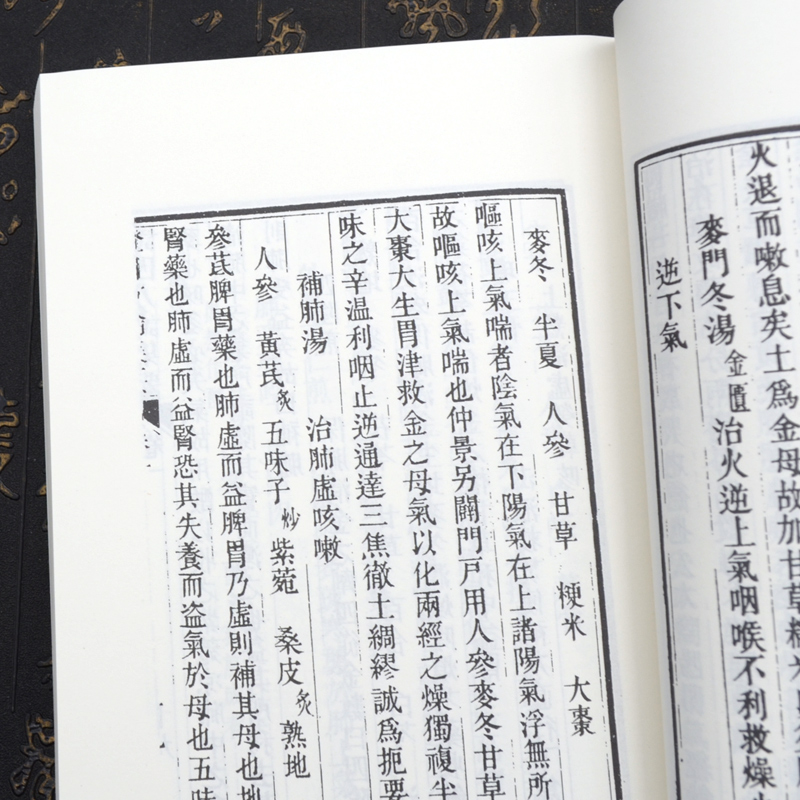 火退而嗽息矣土爲金母故加甘草粳米
麥門冬湯 金匱 治火逆上氣咽喉不利救燥
逆下氣
麥冬 半夏 人參 甘草 粳米 大棗
嘔咳上氣喘者陰氣在下陽氣在上諸陽氣浮無所
故嘔咳上氣喘也仲景另闢門戸用人參麥冬甘草
大棗大生胃津救金之母氣以化兩經之燥獨複半
味之辛温利咽止逆通達三焦徹土綢繆誠爲扼要
補肺湯 治肺虛咳嗽
人參 黃芪炙 五味子炒 紫菀 桑皮炙 熟地
參芪脾胃藥也肺虛而益脾胃乃虛則補其母也地
腎藥也肺虛而益腎恐其失養而盜氣於母也五味